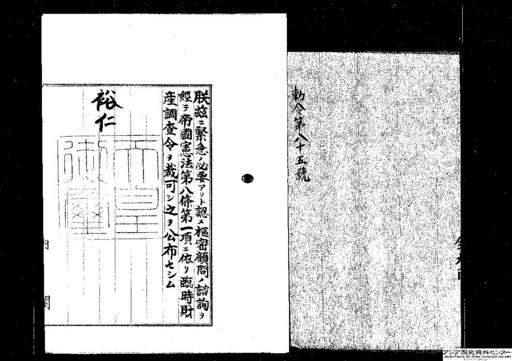 勅令第八十五號
朕玆ニ緊急ノ必要アリト認メ樞密顧問ノ諮詢ヲ
經テ帝國憲法第八條第一項ニ依リ臨時財
産調査令ヲ裁可シ之ヲ公布セシム
裕仁
天皇御璽
内閣
アジア歴史資料センター